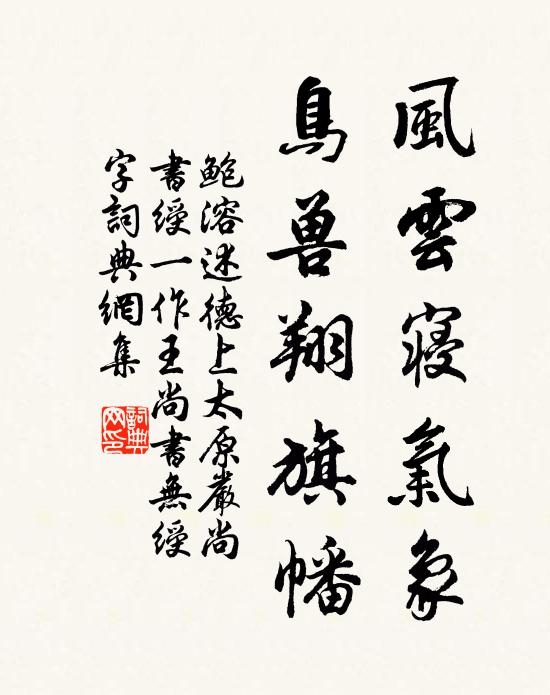 風雲寢氣象
鳥兽翔旗幡
鲍溶述德上太原嚴尚
書綬一作王尚書無綬
字詞典網集
詞典
网印